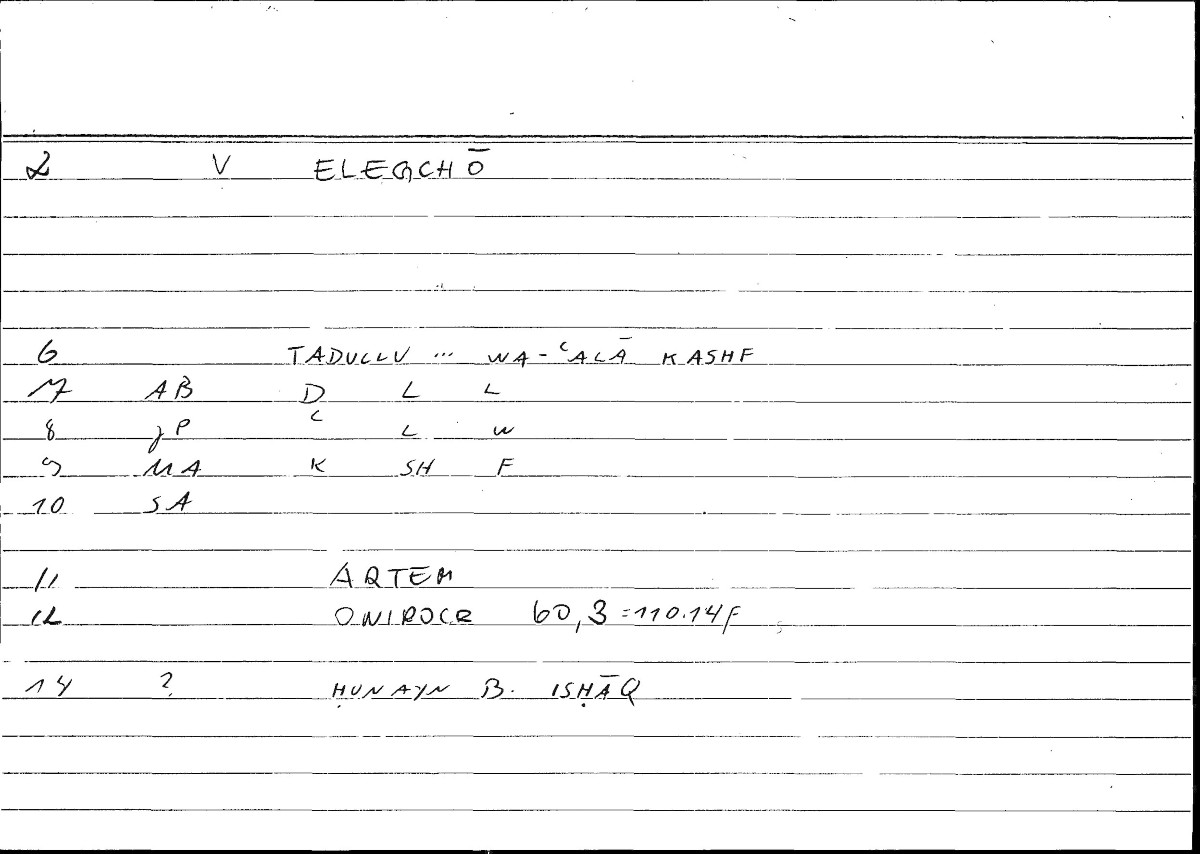 2 V ELEGCHŌ
6 TADULLU ... WA-ʿALĀ KASHF
7 AB D L L
8 jP ʿ L W
9 MA K SH F
10 SA
11 ARTEM
12 ONIROCR 60,3 = 110.14f
14 ? ḤUNAYN B. ISḤĀQ